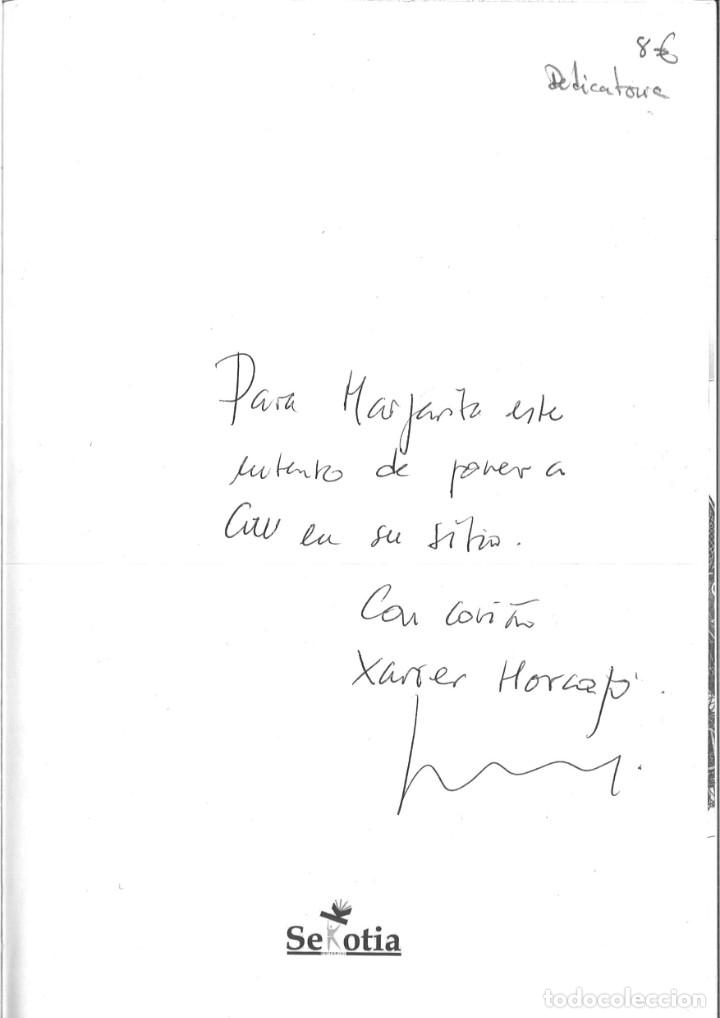 8€
Dedicatoria
Para Margarita este
intento de poner a
en su sitio.
Con cariño
Xavier Horcajo.
SeKotia
todocoleccion